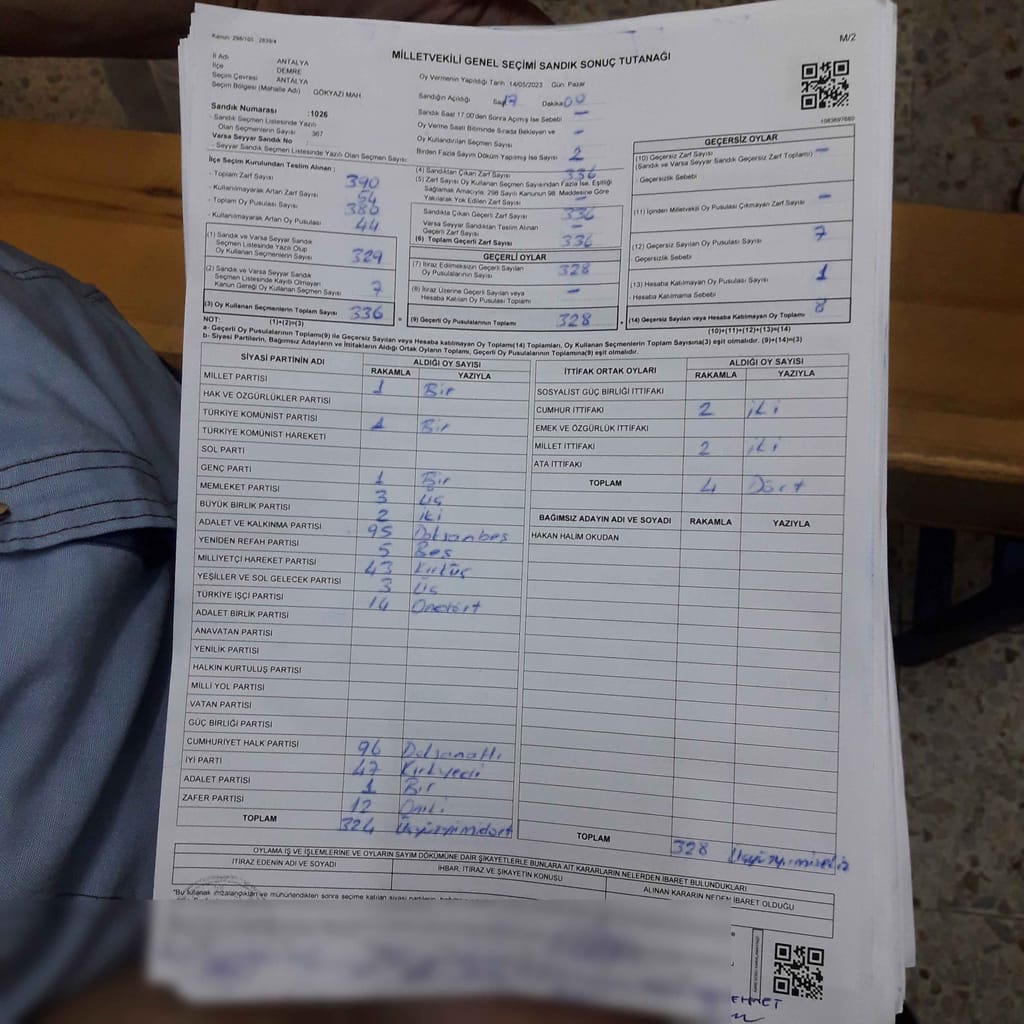 Kanun: 298/105 2839/4
M/2
MİLLETVEKİLİ GENEL SEÇİMİ SANDIK SONUÇ TUTANAĞI
İl Adı ANTALYA
İlçe DEMRE
Seçim Çevresi ANTALYA
Seçim Bölgesi (Mahalle Adı) GÖKYAZI MAH.
Sandık Numarası :1026
- Sandık Seçmen Listesinde Yazılı
Olan Seçmenlerin Sayısı 367
Varsa Seyyar Sandık No
- Seyyar Seçmen Listesinde Yazılı Olan Seçmen Sayısı:
Oy Vermenin Yapıldığı Tarih :14/05/2023 Gün: Pazar
Sandığın Açıldığı Saat 17 Dakika 00
Sandık Saat 17.00'den Sonra Açımış İse Sebebi -
Oy Verme Saati Bitiminde Sırada Bekleyen ve
Oy Kullandırılan Seçmen Sayısı -
Birden Fazla Sayım Döküm Yapılmış İse Sayısı 2
1083697680
İlçe Seçim Kurulundan Teslim Alınan :
- Toplam Zarf Sayısı 390
- Kullanılmayarak Artan Zarf Sayısı 54
- Toplam Oy Pusulası Sayısı 380
- Kullanılmayarak Artan Oy Pusulası 44
(1) Sandık ve Varsa Seyyar Sandık
Seçmen Listesinde Yazılı Olup
Oy Kullanan Seçmenlerin Sayısı 329
(2) Sandık ve Varsa Seyyar Sandık
Seçmen Listesinde Kayıtlı Olmayan
Kanun Gereği Oy Kullanan Seçmen Sayısı 7
(3) Oy Kullanan Seçmenlerin Toplam Sayısı 336
(1)+(2)=(3)
(4) Sandıktan Çıkan Zarf Sayısı 336
(5) Zarf Sayısı Oy Kullanan Seçmen Sayısından Fazla İse, Eşitliği
Sağlamak Amacıyla, 298 Sayılı Kanunun 98. Maddesine Göre
Yakılarak Yok Edilen Zarf Sayısı -
Sandıkta Çıkan Geçerli Zarf Sayısı 336
Varsa Seyyar Sandıktan Teslim Alınan
Geçerli Zarf Sayısı -
(6) Toplam Geçerli Zarf Sayısı 336
GEÇERLİ OYLAR
(7) İtiraz Edilmeksizin Geçerli Sayılan
Oy Pusulalarının Sayısı 328
(8) İtiraz Üzerine Geçerli Sayılan veya
Hesaba Katılan Oy Pusulası Toplamı -
= (9) Geçerli Oy Pusulalarının Toplamı 328
GEÇERSİZ OYLAR
(10) Geçersiz Zarf Sayısı -
(Sandık ve Varsa Seyyar Sandık Geçersiz Zarf Toplamı)
- Geçersizlik Sebebi
(11) İçinden Milletvekili Oy Pusulası Çıkmayan Zarf Sayısı -
(12) Geçersiz Sayılan Oy Pusulası Sayısı 7
- Geçersizlik Sebebi
(13) Hesaba Katılmayan Oy Pusulası Sayısı 1
- Hesaba Katılmama Sebebi
+ (14) Geçersiz Sayılan veya Hesaba Katılmayan Oy Toplamı 8
(10)+(11)+(12)+(13)=(14)
NOT:
a- Geçerli Oy Pusulalarının Toplamı(9) ile Geçersiz Sayılan veya Hesaba katılmayan Oy Toplamı(14) Toplamları, Oy Kullanan Seçmenlerin Toplam Sayısına(3) eşit olmalıdır. (9)+(14)=(3)
b- Siyasi Partilerin, Bağımsız Adayların ve İttifakların Aldığı Ortak Oyların Toplamı, Geçerli Oy Pusulalarının Toplamına(9) eşit olmalıdır.
SİYASİ PARTİNİN ADI ALDIĞI OY SAYISI
RAKAMLA YAZIYLA
MİLLET PARTİSİ 1 Bir
HAK VE ÖZGÜRLÜKLER PARTİSİ
TÜRKİYE KOMÜNİST PARTİSİ 1 Bir
TÜRKİYE KOMÜNİST HAREKETİ
SOL PARTİ
GENÇ PARTİ 1 Bir
MEMLEKET PARTİSİ 3 Üç
BÜYÜK BİRLİK PARTİSİ 2 iki
ADALET VE KALKINMA PARTİSİ 95 Doksanbeş
YENİDEN REFAH PARTİSİ 5 Beş
MİLLİYETÇİ HAREKET PARTİSİ 43 Kırküç
YEŞİLLER VE SOL GELECEK PARTİSİ 3 Üç
TÜRKİYE İŞÇİ PARTİSİ 14 Ondört
ADALET BİRLİK PARTİSİ
ANAVATAN PARTİSİ
YENİLİK PARTİSİ
HALKIN KURTULUŞ PARTİSİ
MİLLİ YOL PARTİSİ
VATAN PARTİSİ
GÜÇ BİRLİĞİ PARTİSİ
CUMHURİYET HALK PARTİSİ 96 Doksanaltı
İYİ PARTİ 47 Kırkyedi
ADALET PARTİSİ 1 Bir
ZAFER PARTİSİ 12 Oniki
TOPLAM 324 Üçyüzyirmidört
İTTİFAK ORTAK OYLARI ALDIĞI OY SAYISI
RAKAMLA YAZIYLA
SOSYALİST GÜÇ BİRLİĞİ İTTİFAKI
CUMHUR İTTİFAKI 2 iki
EMEK VE ÖZGÜRLÜK İTTİFAKI
MİLLET İTTİFAKI 2 iki
ATA İTTİFAKI
TOPLAM 4 Dört
BAĞIMSIZ ADAYIN ADI VE SOYADI RAKAMLA YAZIYLA
HAKAN HALİM OKUDAN
TOPLAM 328 Üçyüzyirmisekiz
OYLAMA İŞ VE İŞLEMLERİNE VE OYLARIN SAYIM DÖKÜMÜNE DAİR ŞİKAYETLERLE BUNLARA AİT KARARLARIN NELERDEN İBARET BULUNDUKLARI
İTİRAZ EDENİN ADI VE SOYADI İHBAR, İTİRAZ VE ŞİKAYETİN KONUSU ALINAN KARARIN NEDEN İBARET OLDUĞU